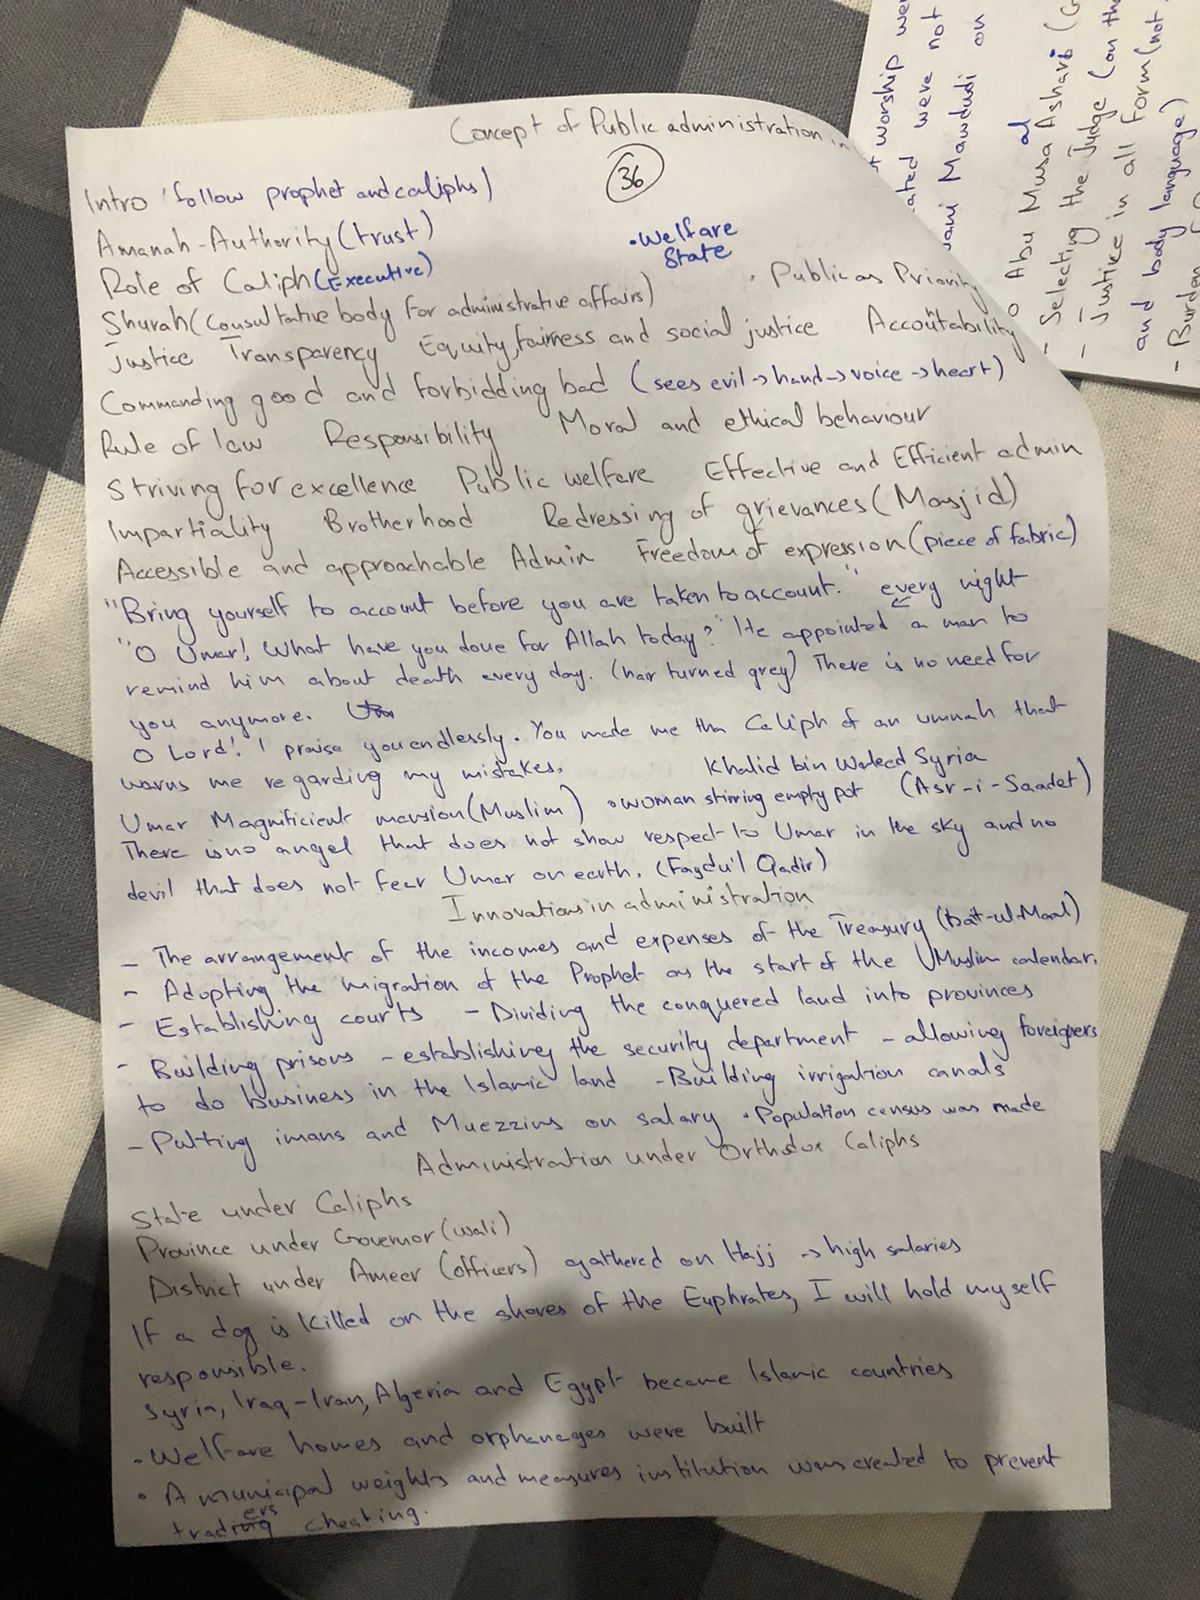 Concept of Public administration in
36
Intro (follow prophet and caliphs)
Amanah-Authority (trust)
• Welfare
State
Role of Caliph (Executive)
• Public as Priority
Shurah (Consultative body for administrative affairs)
Justice Transparency Equity, fairness and social justice Accountability
Commanding good and forbidding bad (sees evil → hand → voice → heart)
Rule of law Responsibility Moral and ethical behaviour
Striving for excellence Public welfare Effective and Efficient admin
Impartiality Brotherhood Redressing of grievances (Masjid)
Accessible and approachable Admin Freedom of expression (piece of fabric)
"Bring yourself to account before you are taken to account." every night
"O Umar! What have you done for Allah today?" He appointed a man to
remind him about death every day. (hair turned grey) There is no need for
you anymore.
O Lord! I praise you endlessly. You made me the Caliph of an ummah that
warns me regarding my mistakes. Khalid bin Waleed Syria
Umar Magnificient mansion (Muslim) • woman stirring empty pot (Asr-i-Saadet)
There is no angel that does not show respect to Umar in the sky and no
devil that does not fear Umar on earth. (Faydu'l Qadir)
Innovations in administration
- The arrangement of the incomes and expenses of the Treasury (bait-ul-Maal)
- Adopting the migration of the Prophet as the start of the Muslim calendar.
- Establishing courts - Dividing the conquered land into provinces
- Building prisons - establishing the security department - allowing foreigners
to do business in the Islamic land - Building irrigation canals
- Putting imans and Muezzins on salary • Population census was made
Administration under Orthodox Caliphs
State under Caliphs
Province under Governor (wali)
District under Ameer (officers) gathered on Hajj → high salaries
If a dog is killed on the shores of the Euphrates, I will hold myself
responsible.
Syria, Iraq-Iran, Algeria and Egypt became Islamic countries
• Welfare homes and orphanages were built
• A municipal weights and measures institution was created to prevent
traders cheating.
worship
were not
Mawdudi on
al
Abu Musa Ashari
- Selecting the Judge (on the
- Justice in all Form (not
and body language)
- Burden